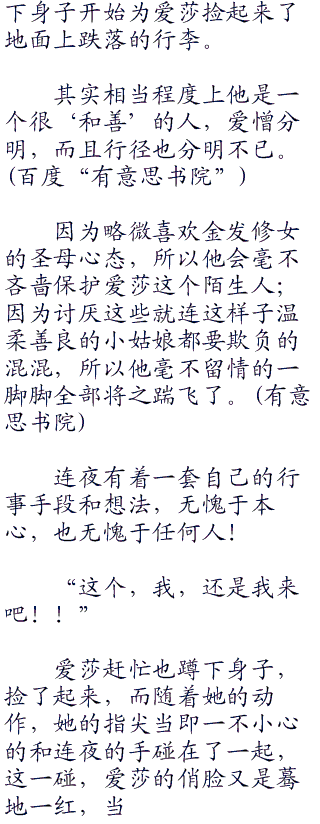 下身子开始为爱莎捡起来了
地面上跌落的行李。
其实相当程度上他是一
个很‘和善’的人，爱憎分
明，而且行径也分明不已。
(百度“有意思书院”)
因为略微喜欢金发修女
的圣母心态，所以他会毫不
吝啬保护爱莎这个陌生人；
因为讨厌这些就连这样子温
柔善良的小姑娘都要欺负的
混混，所以他毫不留情的一
脚脚全部将之踹飞了。(有意
思书院)
连夜有着一套自己的行
事手段和想法，无愧于本
心，也无愧于任何人！
“这个，我，还是我来
吧！！”
爱莎赶忙也蹲下身子，
捡了起来，而随着她的动
作，她的指尖当即一不小心
的和连夜的手碰在了一起，
这一碰，爱莎的俏脸又是蓦
地一红，当